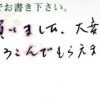 でお書き下さい。
買いました。大変
ろこんでもらえま